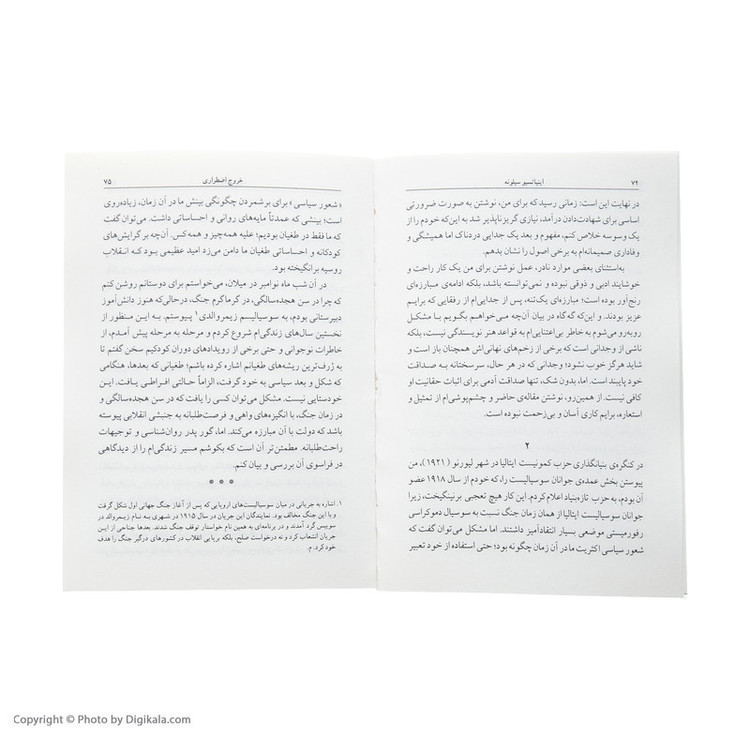 ۷۴
اینیاتسیو سیلونه
در نهایت این است: زمانی رسید که برای من، نوشتن به صورت ضرورتی
اساسی برای شهادت‌دادن درآمد، نیازی گریزناپذیر شد به این‌که خودم را از
یک وسوسه خلاص کنم، مفهوم و بعد یک جدایی دردناک اما همیشگی و
وفاداری صمیمانه‌ام به برخی اصول را نشان بدهم.
به‌استثنای بعضی موارد نادر، عمل نوشتن برای من یک کار راحت و
خوشایند ادبی و ذوقی نبوده و نمی‌توانسته باشد، بلکه ادامه‌ی مبارزه‌ای
رنج‌آور بوده است؛ مبارزه‌ای یک‌تنه، پس از جدایی‌ام از رفقایی که برایم
عزیز بودند. و این‌که گه‌گاه در بیان آن‌چه می‌خواهم بگویم با مشکل
روبه‌رو می‌شوم به خاطر بی‌اعتنایی‌ام به قواعد هنر نویسندگی نیست، بلکه
ناشی از وجدانی است که برخی از زخم‌های نهانی‌اش همچنان باز است و
شاید هرگز خوب نشود؛ وجدانی که در هر حال، سرسختانه به صداقت
خود پایبند است. اما، بدون شک، تنها صداقت آدمی برای اثبات حقانیت او
کافی نیست. از همین‌رو، نوشتن مقاله‌ی حاضر و چشم‌پوشی‌ام از تمثیل و
استعاره، برایم کاری آسان و بی‌زحمت نبوده است.
۲
در کنگره‌ی بنیانگذاری حزب کمونیست ایتالیا در شهر لیورنو (۱۹۲۱)، من
پیوستن بخش عمده‌ی جوانان سوسیالیست را، که خودم از سال ۱۹۱۸ عضو
آن بودم، به حزب تازه‌بنیاد اعلام کردم. این کار هیچ تعجبی برنینگیخت، زیرا
جوانان سوسیالیست ایتالیا از همان زمان جنگ نسبت به سوسیال دموکراسی
رفورمیستی موضعی بسیار انتقادآمیز داشتند. اما مشکل می‌توان گفت که
شعور سیاسی اکثریت ما در آن زمان چگونه بود؛ حتی استفاده از خود تعبیر
خروج اضطراری
۷۵
«شعور سیاسی» برای برشمردن چگونگی بینش ما در آن زمان، زیاده‌روی
است؛ بینشی که عمدتاً مایه‌های روانی و احساساتی داشت. می‌توان گفت
که ما فقط در طغیان بودیم؛ علیه همه‌چیز و همه‌کس. آن‌چه بر گرایش‌های
کودکانه و احساساتی طغیان ما دامن می‌زد امید عظیمی بود که انقلاب
روسیه برانگیخته بود.
در آن شب ماه نوامبر در میلان، می‌خواستم برای دوستانم روشن کنم
که چرا در سن هجده‌سالگی، در گرماگرم جنگ، درحالی‌که هنوز دانش‌آموز
دبیرستانی بودم، به سوسیالیسم زیمروالدی۱ پیوستم. به این منظور از
نخستین سال‌های زندگی‌ام شروع کردم و مرحله به مرحله پیش آمدم، از
خاطرات نوجوانی و حتی برخی از رویدادهای دوران کودکیم سخن گفتم تا
به ژرف‌ترین ریشه‌های طغیانم اشاره کرده باشم؛ طغیانی که بعدها، هنگامی
که شکل و بعد سیاسی به خود گرفت، الزاماً حالتی افراطی یافت. این
خودستایی نیست. مشکل می‌توان کسی را یافت که در سن هجده‌سالگی و
در زمان جنگ، با انگیزه‌های واهی و فرصت‌طلبانه به جنبشی انقلابی پیوسته
باشد که دولت با آن مبارزه می‌کند. اما، گور پدر روان‌شناسی و توجیهات
راحت‌طلبانه. مطمئن‌تر آن است که بکوشم مسیر زندگی‌ام را از دیدگاهی
در فراسوی آن بررسی و بیان کنم.
* * *
۱. اشاره به جریانی در میان سوسیالیست‌های اروپایی که پس از آغاز جنگ جهانی اول شکل گرفت
و با این جنگ مخالف بود. نمایندگان این جریان در سال ۱۹۱۵ در شهری به نام زیمروالد در
سوییس گرد آمدند و در برنامه‌ای به همین نام خواستار توقف جنگ شدند. بعدها جناحی از این
جریان انشعاب کرد و نه درخواست صلح، بلکه برپایی انقلاب در کشورهای درگیر جنگ را هدف
خود کرد. م.
Copyright © Photo by Digikala.com